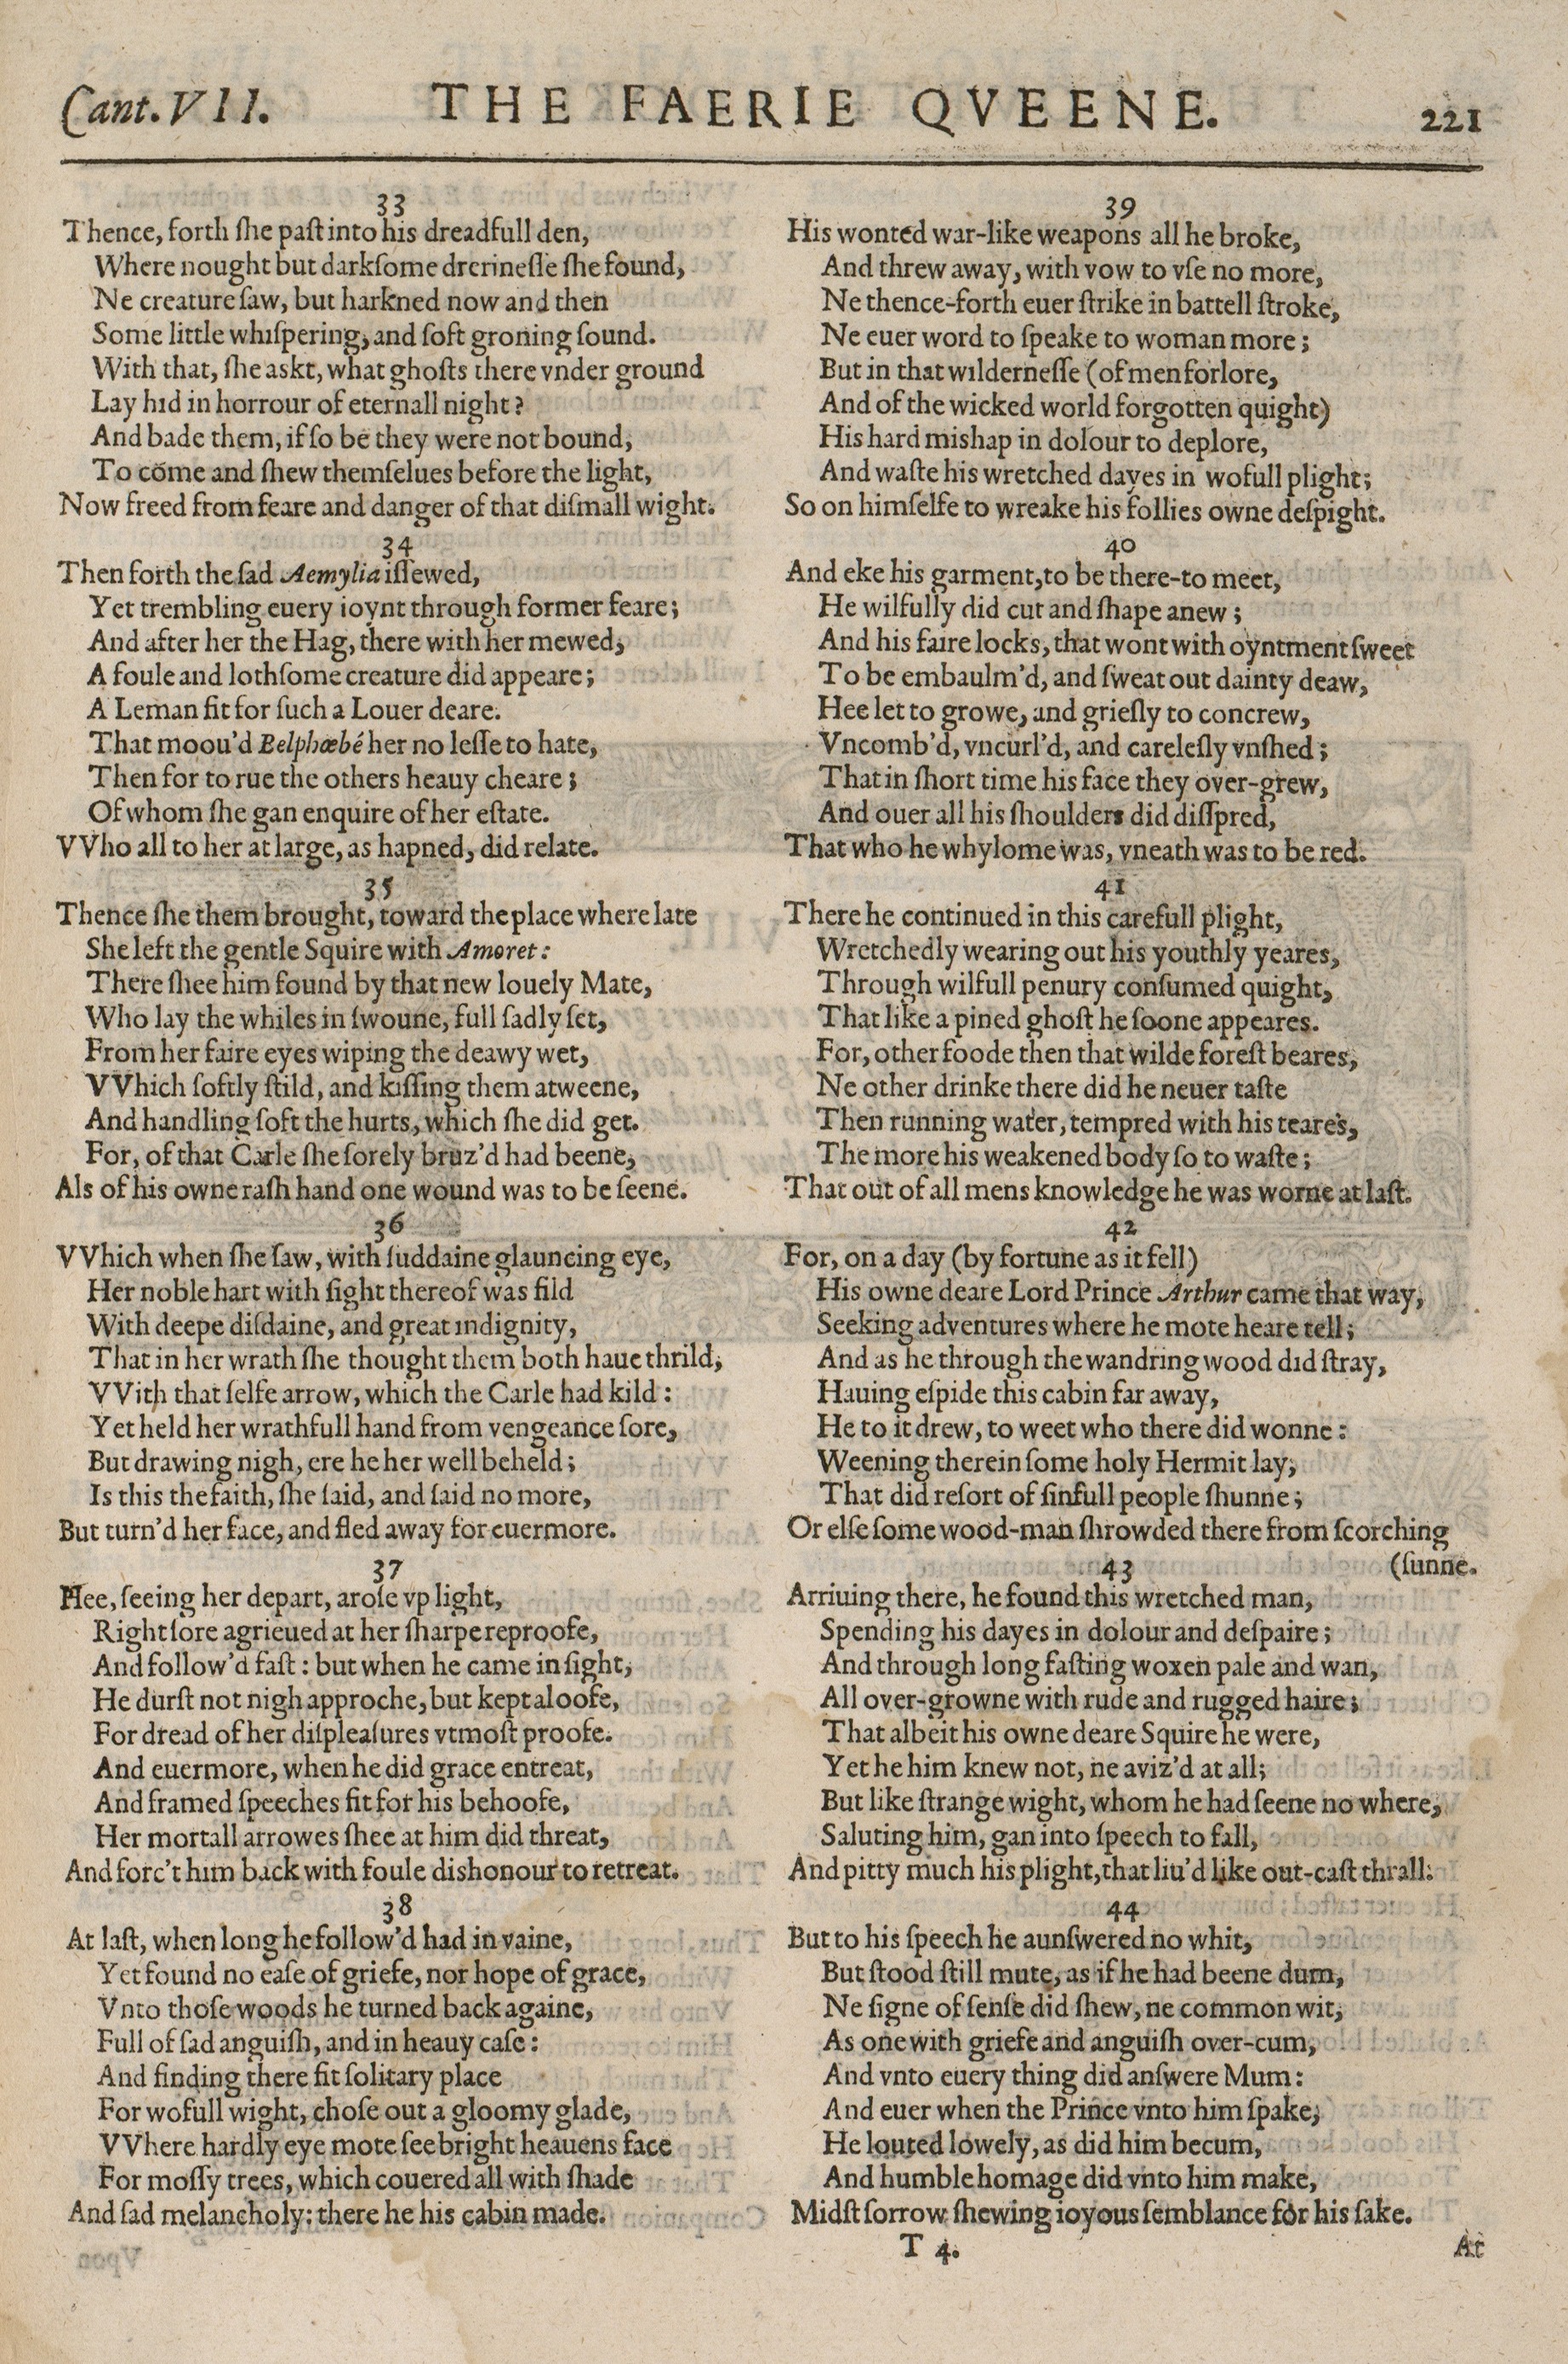 Cant. VII. THE FAERIE QVEENE. 221
33
Thence, forth ſhe paſt into his dreadfull den,
Where nought but darkſome drerineſſe ſhe found,
Ne creature ſaw, but harkned now and then
Some little whiſpering, and ſoft groning ſound.
With that, ſhe askt, what ghoſts there vnder ground
Lay hid in horrour of eternall night?
And bade them, if ſo be they were not bound,
To come and ſhew themſelues before the light,
Now freed from feare and danger of that diſmall wight.
34
Then forth the ſad Aemylia iſſewed,
Yet trembling euery ioynt through former feare;
And after her the Hag, there with her mewed,
A foule and lothſome creature did appeare;
A Leman fit for ſuch a Louer deare.
That moou'd Belphœbé her no leſſe to hate,
Then for to rue the others heauy cheare;
Of whom ſhe gan enquire of her eſtate.
VVho all to her at large, as hapned, did relate.
35
Thence ſhe them brought, toward the place where late
She left the gentle Squire with Amoret:
There ſhee him found by that new louely Mate,
Who lay the whiles in ſwoune, full ſadly ſet,
From her faire eyes wiping the deawy wet,
VVhich ſoftly ſtild, and kiſſing them atweene,
And handling ſoft the hurts, which ſhe did get.
For, of that Carle ſhe ſorely bruz'd had beene,
Als of his owne raſh hand one wound was to be ſeene.
36
VVhich when ſhe ſaw, with ſuddaine glauncing eye,
Her noble hart with ſight thereof was fild
With deepe diſdaine, and great indignity,
That in her wrath ſhe thought them both haue thrild,
VVith that ſelfe arrow, which the Carle had kild:
Yet held her wrathfull hand from vengeance ſore,
But drawing nigh, ere he her well beheld;
Is this the faith, ſhe ſaid, and ſaid no more,
But turn'd her face, and fled away for euermore.
37
Hee, ſeeing her depart, aroſe vp light,
Right ſore agrieued at her ſharpe reproofe,
And follow'd faſt: but when he came in ſight,
He durſt not nigh approche, but kept aloofe,
For dread of her diſpleaſures vtmoſt proofe.
And euermore, when he did grace entreat,
And framed ſpeeches fit for his behoofe,
Her mortall arrowes ſhee at him did threat,
And forc't him back with foule dishonour to retreat.
38
At laſt, when long he follow'd had in vaine,
Yet found no eaſe of griefe, nor hope of grace,
Vnto thoſe woods he turned back againe,
Full of ſad anguiſh, and in heauy caſe:
And finding there fit ſolitary place
For wofull wight, choſe out a gloomy glade,
VVhere hardly eye mote ſee bright heauens face
For moſſy trees, which couered all with ſhade
And ſad melancholy: there he his cabin made.
39
His wonted war-like weapons all he broke,
And threw away, with vow to vſe no more,
Ne thence-forth euer ſtrike in battell ſtroke,
Ne euer word to ſpeake to woman more;
But in that wilderneſſe (of men forlore,
And of the wicked world forgotten quight)
His hard mishap in dolour to deplore,
And waſte his wretched dayes in wofull plight;
So on himſelfe to wreake his follies owne deſpight.
40
And eke his garment, to be there-to meet,
He wilfully did cut and ſhape anew;
And his faire locks, that wont with oyntment ſweet
To be embaulm'd, and ſweat out dainty deaw,
Hee let to growe, and grieſly to concrew,
Vncomb'd, vncurl'd, and careleſly vnſhed;
That in ſhort time his face they over-grew,
And ouer all his ſhoulders did diſſpred,
That who he whylome was, vneath was to be red.
41
There he continued in this carefull plight,
Wretchedly wearing out his youthly yeares,
Through wilfull penury conſumed quight,
That like a pined ghoſt he ſoone appeares.
For, other foode then that wilde foreſt beares,
Ne other drinke there did he neuer taſte
Then running water, tempred with his teares,
The more his weakened body ſo to waſte;
That out of all mens knowledge he was worne at laſt.
42
For, on a day (by fortune as it fell)
His owne deare Lord Prince Arthur came that way,
Seeking adventures where he mote heare tell;
And as he through the wandring wood did ſtray,
Hauing eſpide this cabin far away,
He to it drew, to weet who there did wonne:
Weening therein ſome holy Hermit lay,
That did reſort of ſinfull people ſhunne;
Or elſe ſome wood-man ſhrowded there from ſcorching
(ſunne.
43
Arriuing there, he found this wretched man,
Spending his dayes in dolour and deſpaire;
And through long faſting woxen pale and wan,
All over-growne with rude and rugged haire;
That albeit his owne deare Squire he were,
Yet he him knew not, ne aviz'd at all;
But like ſtrange wight, whom he had ſeene no where,
Saluting him, gan into ſpeech to fall,
And pitty much his plight, that liu'd like out-caſt thrall.
44
But to his ſpeech he aunſwered no whit,
But ſtood ſtill mute, as if he had beene dum,
Ne ſigne of ſenſe did ſhew, ne common wit,
As one with griefe and anguiſh over-cum,
And vnto euery thing did anſwere Mum:
And euer when the Prince vnto him ſpake,
He louted lowely, as did him becum,
And humble homage did vnto him make,
Midſt ſorrow ſhewing ioyous ſemblance for his ſake.
T 4. At